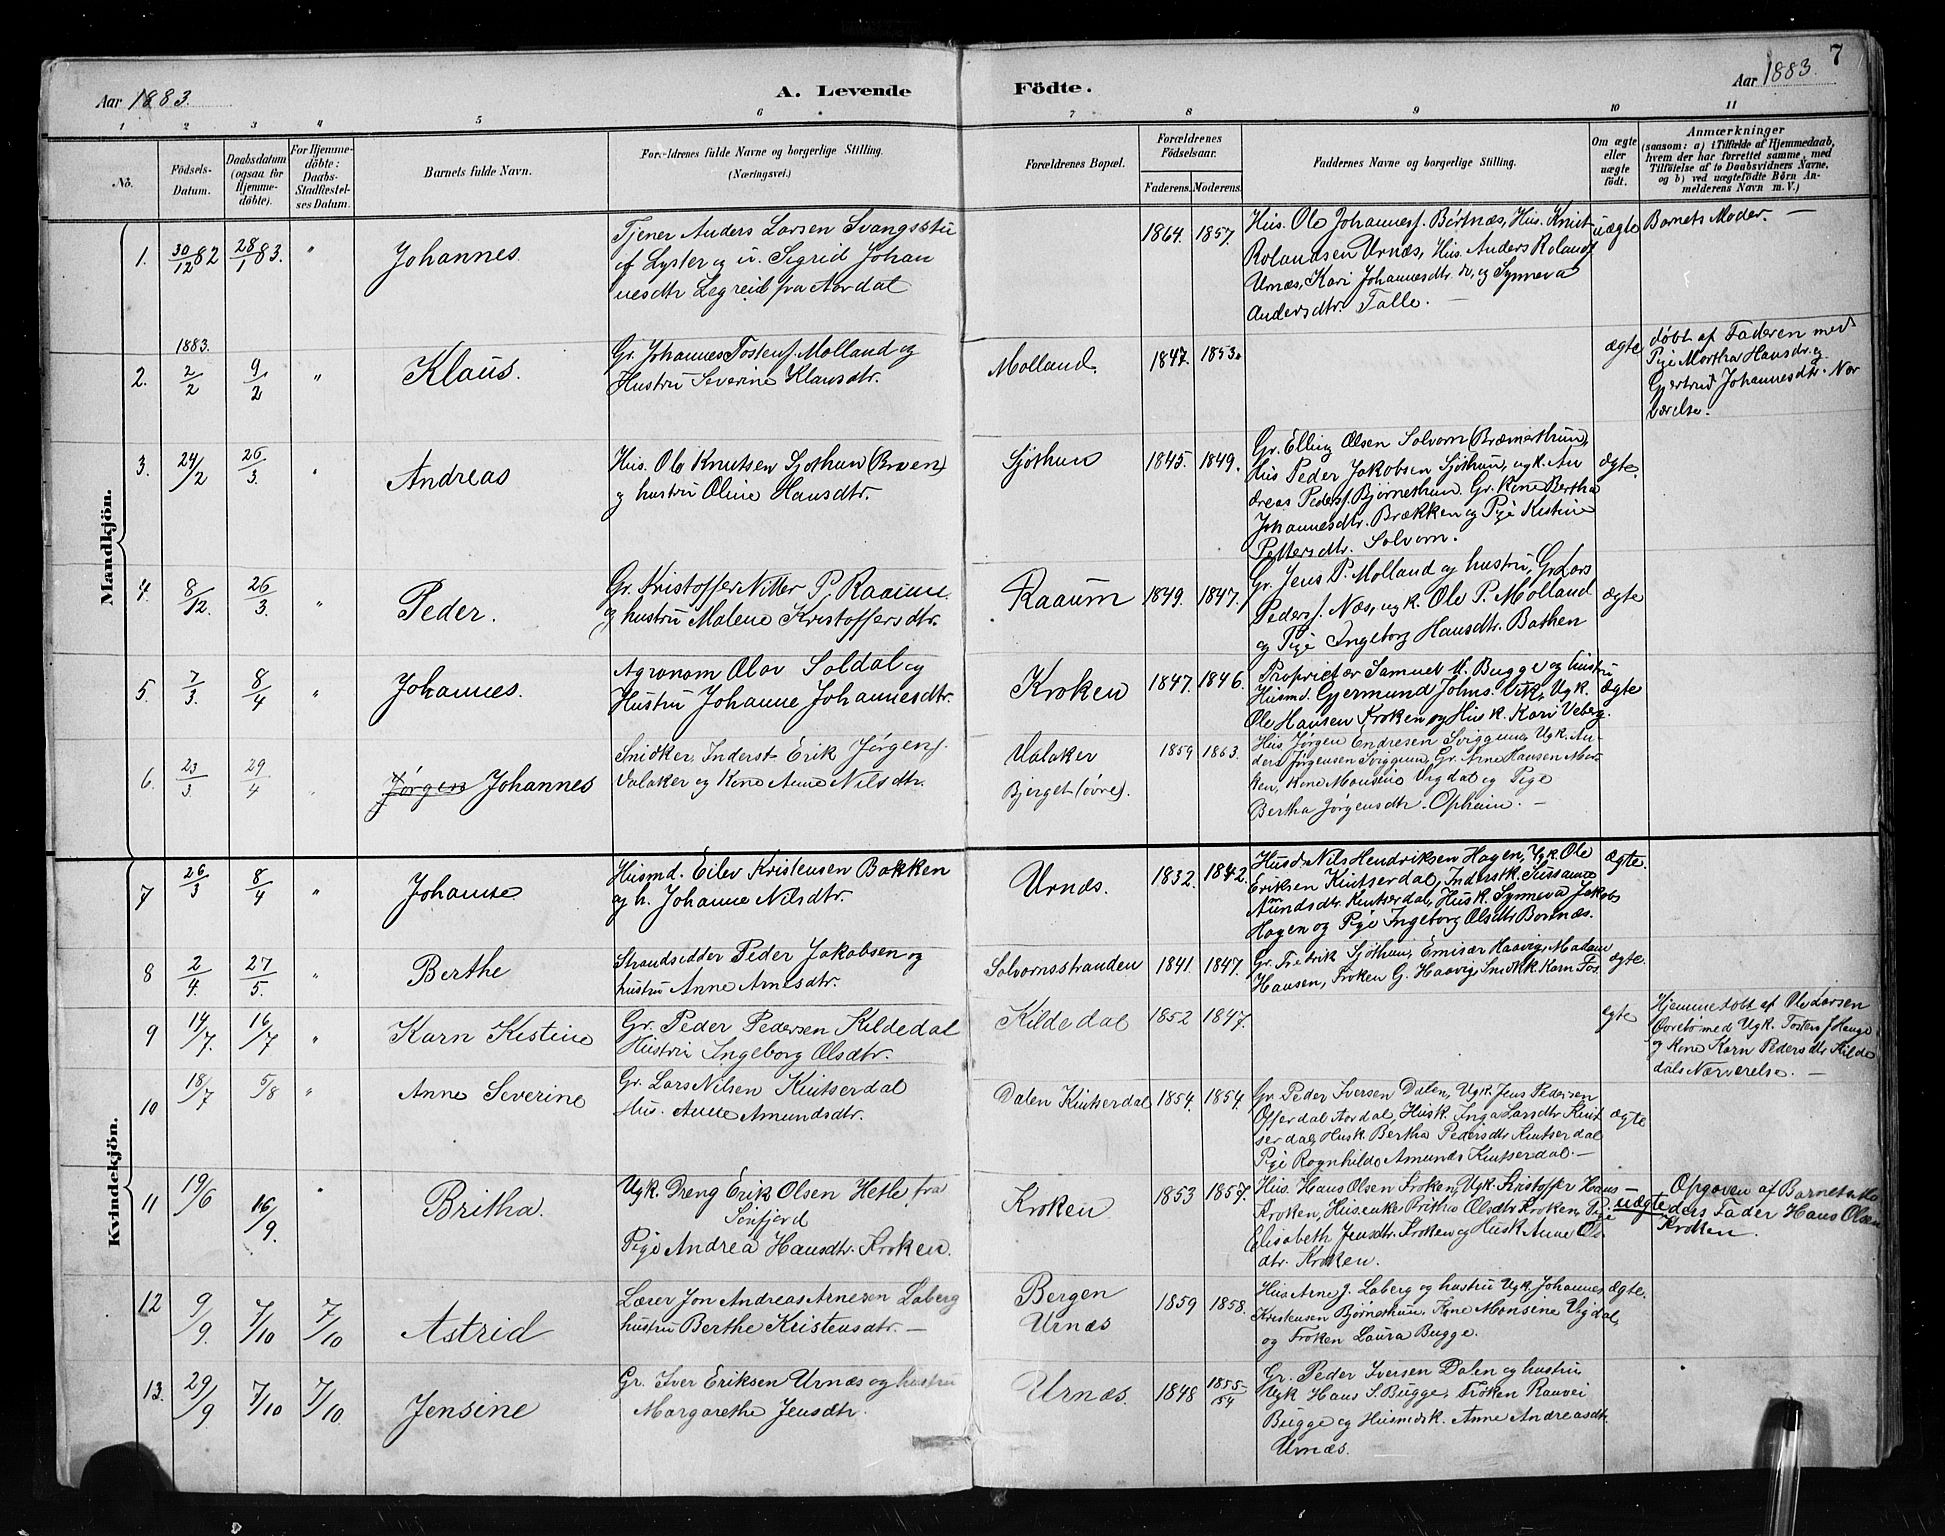 Aar 1883.
A. Levende
Födte.
Aar 1883.
7
1 2 3 4 5 6 7 8 9 10 11
No.
Födsels-
Datum.
Daabsdatum
(ogsaa for
Hjemme-
döbte).
For Hjemme-
döbte:
Daabs-
Stadfæstel-
ses Datum.
Barnets fulde Navn.
Forældrenes fulde Navne og borgerlige Stilling.
(Næringsvei.)
Forældrenes Bopæl.
Forældrenes
Födselsaar.
Faderens. Moderens.
Faddernes Navne og borgerlige Stilling.
Om ægte
eller
uægte
födt.
Anmærkninger
(saasom: a) i Tilfælde af Hjemmedaab,
hvem der har forrettet samme, med
Tilföielse af to Daabsvidners Navne,
og b) ved uægtefödte Börn An-
melderens Navn m. V.)
Mandkjön.
1. 30/12 82 28/1 83. " Johannes.
Tjener Anders Larsen Svangsstu
af Lyster og u. Sigrid Johan
nesdtr Legreid fra Aordal
1864. 1857.
Hus. Ole Johannesf. Børtnæs, Hus. Knut
Rolandsen Urnæs, Hus. Anders Rolandf
Urnæs, Kari Johannesdtr. do, og Synneva
Andersdtr. Talle. —
uægte
Barnets Moder. —
1883.
2. 2/2 9/2 " Klaus.
Gr. Johannes Tostenf. Molland og
Hustru Severine Klausdtr.
Molland.
1847. 1853.
ægte
døbt af Faderen med
Pige Martha Hansdr. og
Gjertrud Johannesdtr. Nær
værelse.
3. 24/2 26/3. " Andreas
Hus. Ole Knutsen Sjøthun (Broen)
og hustru Oline Hansdtr.
Sjøthun
1845. 1849.
Gr. Elling Olsen Solvorn (Bræmerthun),
Hus Peder Jakobsen Sjøthun, ugk. An
dreas Pedersf. Bjørnethun. Gr. Kone Bertha
Johannesdtr. Brækken og Pige Kistine
Pettersdtr. Solvorn.
ægte.
4. 8/12. 26/3. " Peder.
Gr. Kristoffer Nitter P. Raaum
og hustru Malene Kristoffersdtr.
Raaum
1849. 1847.
Gr. Jens P. Molland og hustru, Gr. Lars
Pedersf. Næs, ugk. Ole P. Molland
og Pige Ingeborg Hansdtr. Bathen
ægte
5 7/3. 8/4 " Johannes.
Agronom Olav Soldal og
Hustru Johanne Johannesdtr.
Kroken
1847. 1846.
Proprietær Samuel M. Bugge og hustru
Husmd. Gjermund Johns. Vik, Ugk.
Ole Hansen Kroken og Hus k. Kari Veberg.
ægte
6. 23/3 29/4 Jørgen Johannes
Snidker Inderst Erik Jørgenf.
Valaker og Kone Anne Nilsdtr.
Valaker
Bjerget (øvre).
1859 1863.
Hus Jørgen Endresen Sviggum, Ugk. An-
ders Jørgensen Sviggum, Gr. Arne Hansen Mor-
ken, Kone Monsine Vigdal og Pige
Bertha Jørgensdtr. Opheim. —
Kvindekjön.
7 26/3 8/4 " Johanne
Husmd. Eilev Kristensen Bakken
og h. Johanne Nilsdtr.
Urnæs.
1832. 1842.
Husd. Nils Hendriksen Hagen, Ugk. Ole
Eriksen Kintserdal, Inderstk. Sussanne
Amundsdtr. Kintserdal, Husk. Synneva Jakobs
Hagen og Pige Ingeborg Olsdtr. Bornæs.
ægte.
8 2/4. 27/5. " Berthe
Strandsidder Peder Jakobsen og
hustru Anne Arnesdtr.
Solvornsstranden
1841. 1847.
Gr. Fredrik Sjøthun, Emisær Haavig, Madam
Hansen, Frøken G. Haavig, Snidkk. Karn Tos.
ægte.
9 14/7. 16/7 " Karn Kistine
Gr. Peder Pedersen Kildedal
Hustru Ingeborg Olsdtr.
Kildedal
1852 1847.
egte
Hjemmedøbt af Ole Larsen
Øvrebø med Ugk. Tosten J. Hauge
og Kone Karn Pedersdtr Kilde
dals Nærværelse. —
10 18/7 5/8 " Anne Severine
Gr. Lars Nilsen Kintserdal
Hus. Anne Amundsdtr.
Dalen Kintserdal
1854. 1854.
Gr. Peder Iversen Dalen, Ugk. Jens Pedersen
Offerdal Aardal, Husk. Inga Larsdtr. Kint
serdal, Husk. Bertha Pedersdtr Kintserdal
Pige Ragnhilde Amunds Kintserdal. —
ægte
11 19/6 16/9. " Britha.
Ugk. Dreng Erik Olsen Hetle fra
Sønfjord
Pige Andrea Hansdtr. Kroken.
Kroken
1853 1857.
Hus. Hans Olsen Kroken, Ugk. Kristoffer Hans
Kroken, Husenke Brithe Olsdtr Kroken, Pige
Elisabeth Jensdtr. Kroken og Husk Anne Ols
dtr. Kroken.
uægte
Opgaven af Barnets Mo
ders Fader Hans Olsen
Kroken.
12 9/9. 7/10 7/10 Astrid
Lærer Jon Andreas Arnesen Laberg
hustru Berthe Kristensdtr. —
Bergen
Urnæs
1859 1858.
Hus Arne J. Laberg og hustru Ugk. Johannes
Kristensen Bjørnethun, Kone Monsine Vigdal,
og Frøken Laura Bugge.
ægte.
13. 29/9 7/10 7/10 Jensine
Gr. Iver Eriksen Urnæs og hustru
Margarethe Jensdtr.
Urnæs.
1848 1855/54
Gr. Peder Iversen Dalen og hustru
Ugk Hans S. Bugge, Frøken Ranvei
Bugge og Husmdsk. Anne Andreasdtr.
Urnæs.